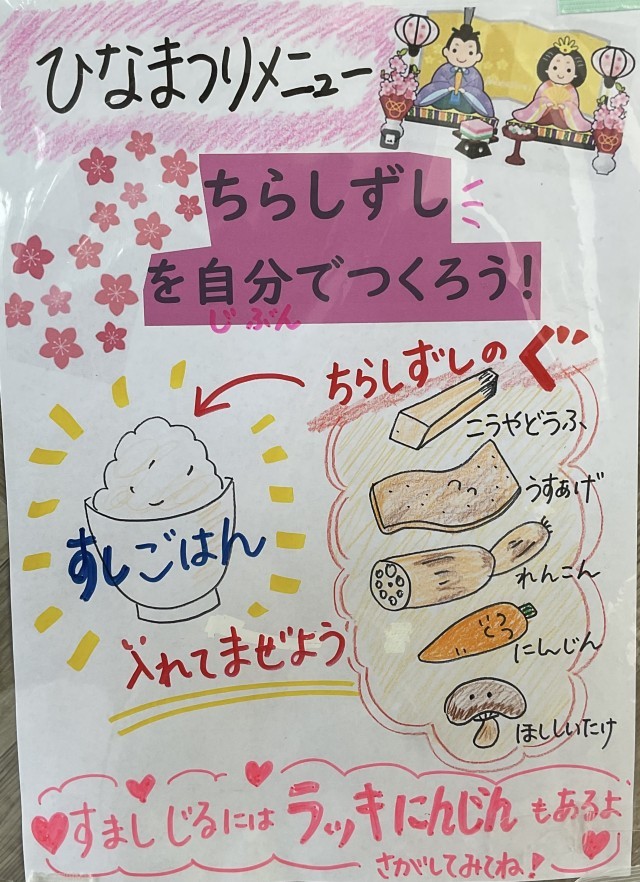 ひなまつりメニュー
ちらしずし
を自分でつくろう!
じぶん
ちらしずしのぐ
こうやどうふ
うすあげ
すしごはん
れんこん
にんじん
入れてまぜよう
ほししいたけ
すましじるにはラッキにんじんもあるよ
さがしてみてね!